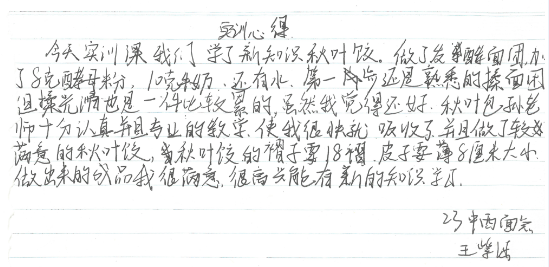 实训心得
今天实训课我们学了新知识秋叶饺。做了发酵面团,加
了8克酵母粉,10克奶,还有水。第一步还是熟悉的揉面团
这揉光滑也是一件比较累的,虽然我觉得还好.秋叶包孙老
师十分认真并且专业的教案.使我很快就吸收了并且做了较为
满意的秋叶饺,当秋叶饺的褶子要18褶.皮子要薄8厘米大小.
做出来的成品我很满意.很高兴能有新的知识学习.
23中西面点
王紫